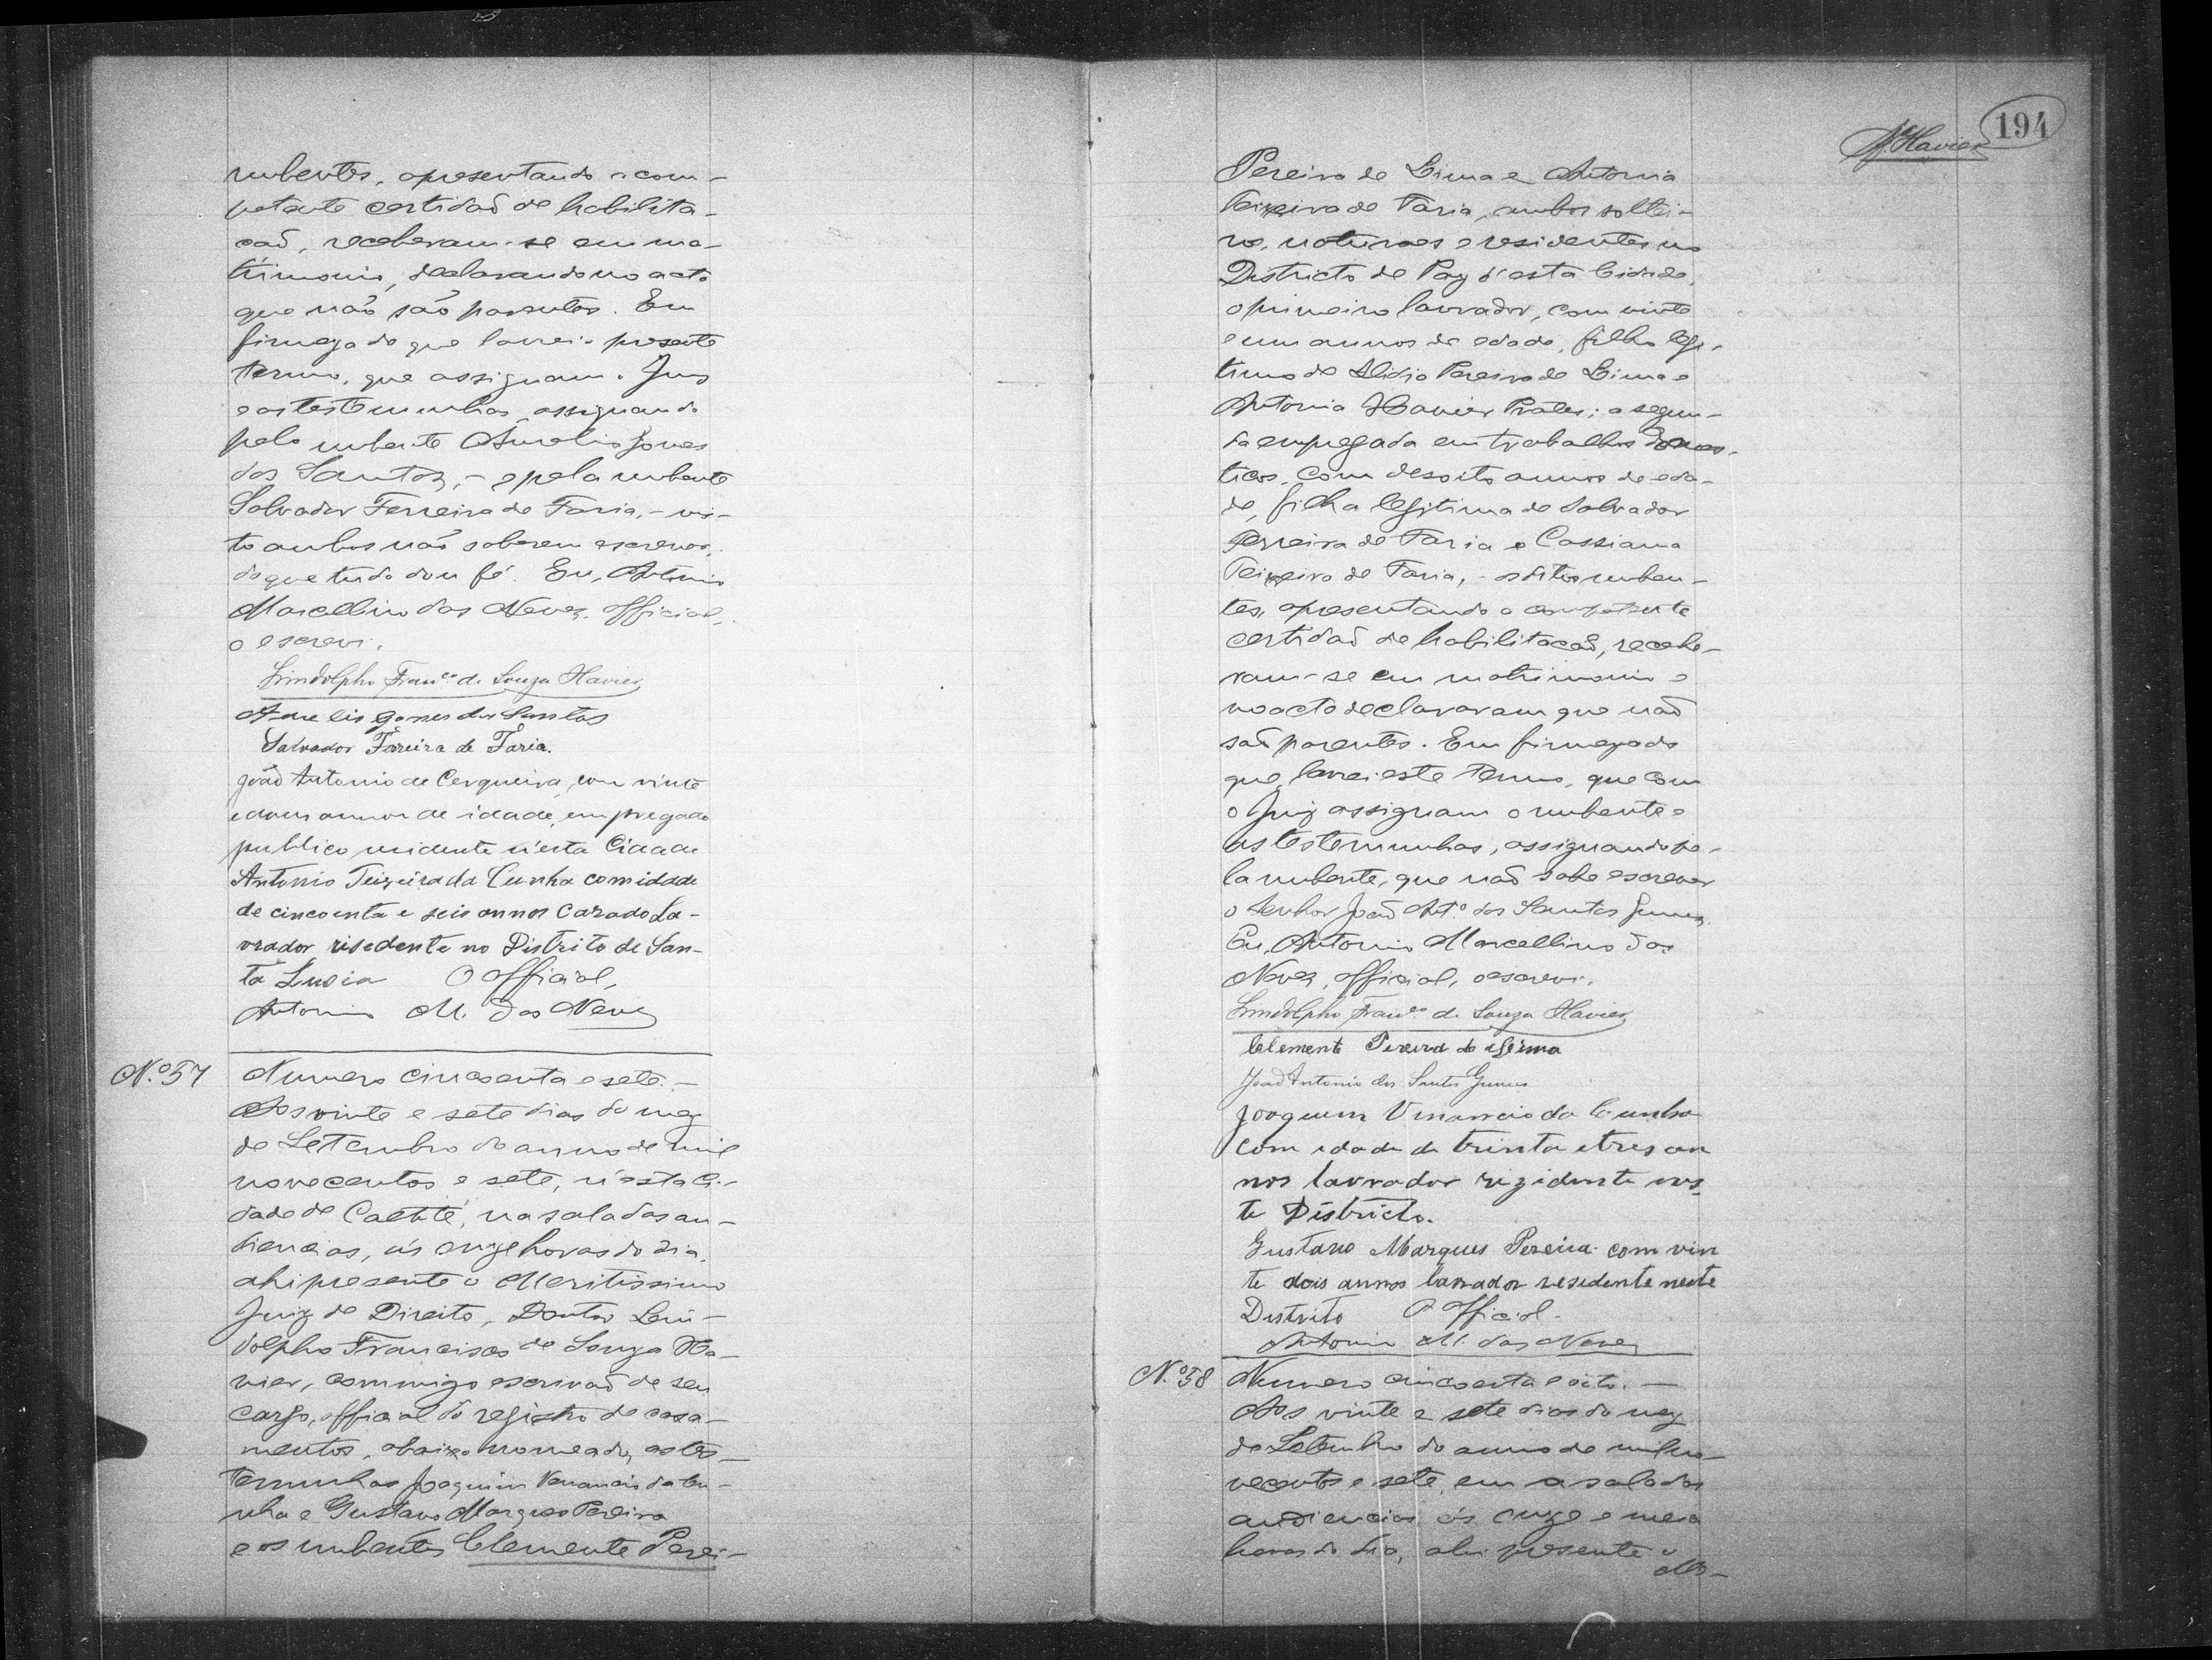 nubentes, apresentando a com-
petente certidaõ de habilita-
caõ, receberam-se em ma-
trimonio, declarando no acto
que não são parentes. Em
firmeza do que lavrei o presente
termo, que assignam o Juiz
e as testemunhas, assignando
pelo nubente Aurelio Gomes
dos Santos, - e pela nubente
Salvador Ferreira de Faria, - vis-
to ambos não saberem escrever,
do que tudo dou fé. Eu, Antonio
Marcellino das Neves, official,
o escrevi.
Lindolpho Franco. de Souza Xavier
Aurelio Gomes dos Santos
Salvador Ferreira de Faria.
João Antonio de Cerqueira, com vinte
e dous annos de idade, empregado
publico residente n'esta Cidade
Antonio Teixeira da Cunha com idade
de cincoenta e seis annos Cazado La-
vrador risedente no Distrito de San-
ta Luzia O Official,
Antonio M. das Neves
N.º 57 Numero cincoenta e sete. -
Aos vinte e sete dias do mez
de Setembro do anno de mil
novecentos e sete, n'esta Ci-
dade de Caetité, na sala das au-
diencias, ás onze horas do dia,
ahi presente o Meritissimo
Juiz de Direito, Doutor Lin-
dolpho Francisco de Souza Xa-
vier, commigo escrivaõ de seu
cargo, official do registro de casa-
mentos, abaixo nomeado, as tes-
temunhas Joaquim Venancio da Cu-
nha e Gustavo Marques Pereira
e os nubentes Clemente Perei-
194
Xavier
Pereira de Lima e Antonia
Teixeira de Faria, ambos soltei-
ros, naturaes e residentes no
Districto de Paz d'esta Cidade,
o primeiro lavrador, com vinte
e um annos de edade, filho legi-
timo de Pereira de Lima e
Antonia Xavier Prates; a segun-
da empregada em trabalhos domes-
ticos, com desoito annos de eda-
de, filha legitima de Salvador
Ferreira de Faria e Cassiana
Teixeira de Faria, - os ditos nuben-
tes, apresentando a competente
certidaõ de habilitacaõ, recebe-
ram-se em matrimonio e
no acto declararam que naõ
saõ parentes. Em firmeza do
que, lavrei este termo, que com
o Juiz assignam o nubente e
as testemunhas, assignando pe-
la nubente, que naõ sabe escrever
o Senhor Joaõ Ant.º dos Santos Gumes.
Eu, Antonio Marcellino das
Neves, official, o escrevi.
Lindolpho Franco. de Souza Xavier
Clemente Pereira de Lima
Joaõ Antonio dos Santos Gumes
Joaquim Vinancio da Cunha
com idade de trinta e tres an
nos lavrador rizidente nes
te Districto.
Gustavo Marques Pereira com vin
te dois annos lavrador residente neste
Distrito O Official.
Antonio M. das Neves
N.º 58 Numero cincoenta e oito. -
Aos vinte e sete dias do mez
de Setembro do anno de mil no-
vecentos e sete, em a sala das
audiencias, ás onze e meia
horas do dia, ahi presente o
Me-